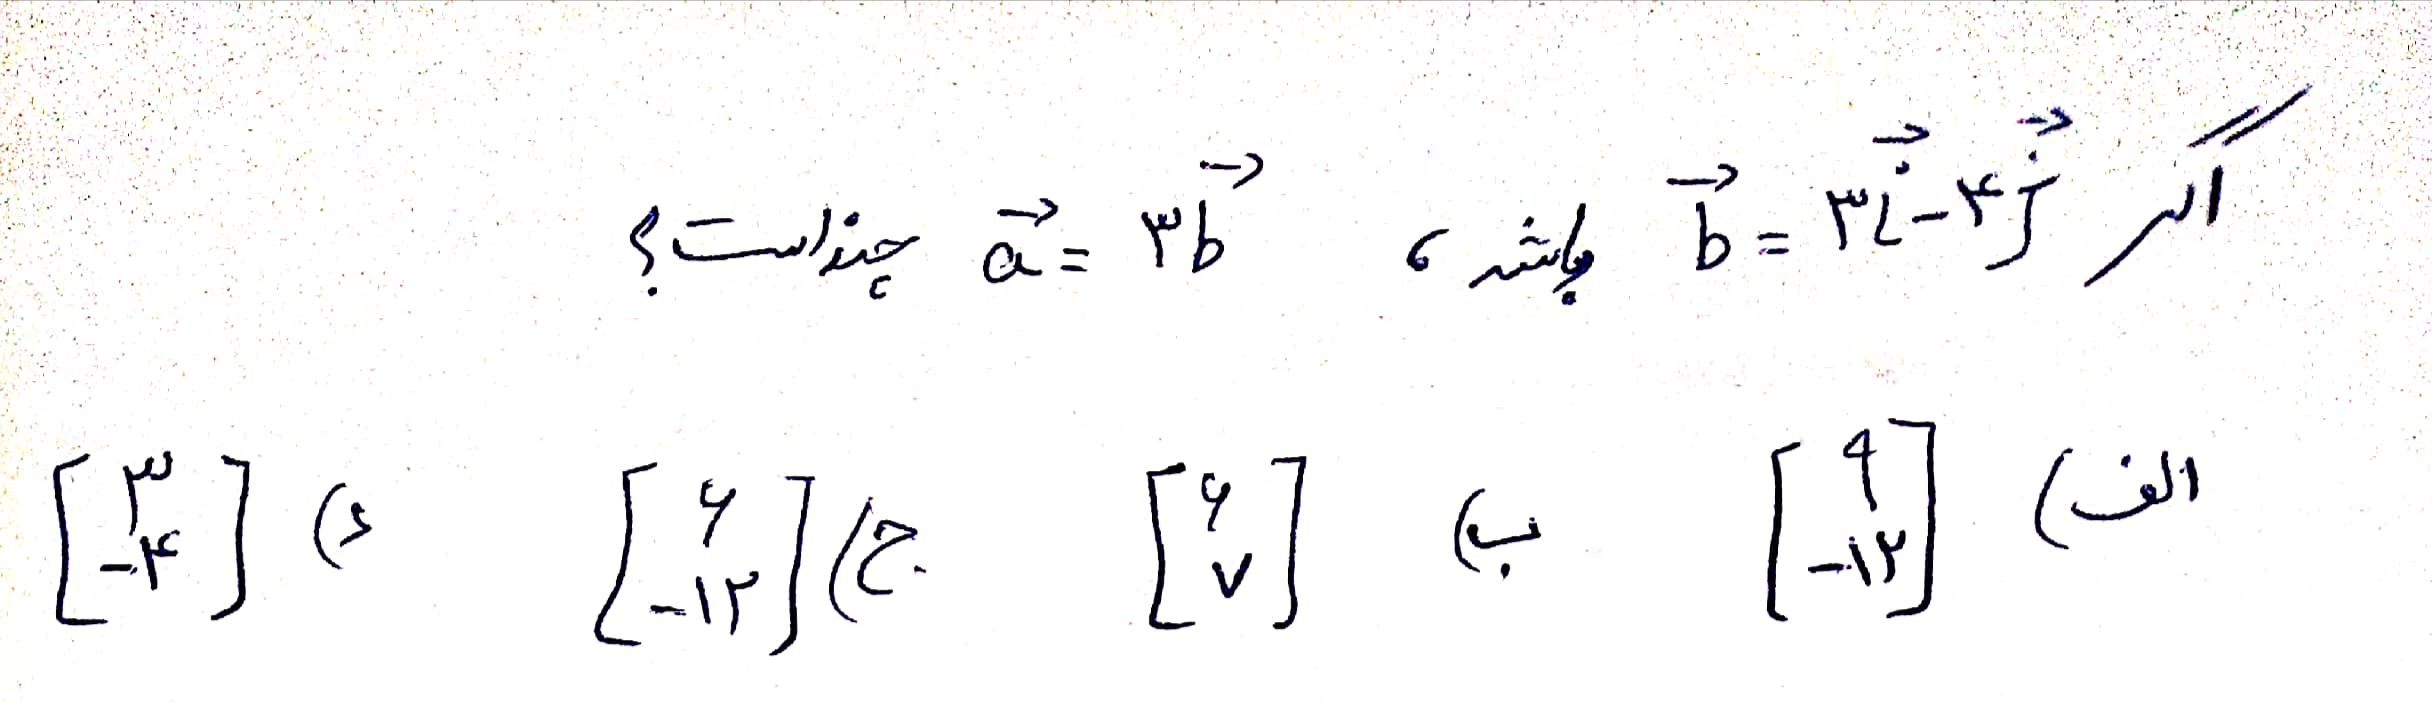 اگر b⃗ = ۳i⃗ - ۴j⃗ باشد، a⃗ = ۳b⃗ چند است؟
الف) [۹ -۱۲] ب) [۶ ۷] ج) [۶ -۱۲] د) [۳ -۴]